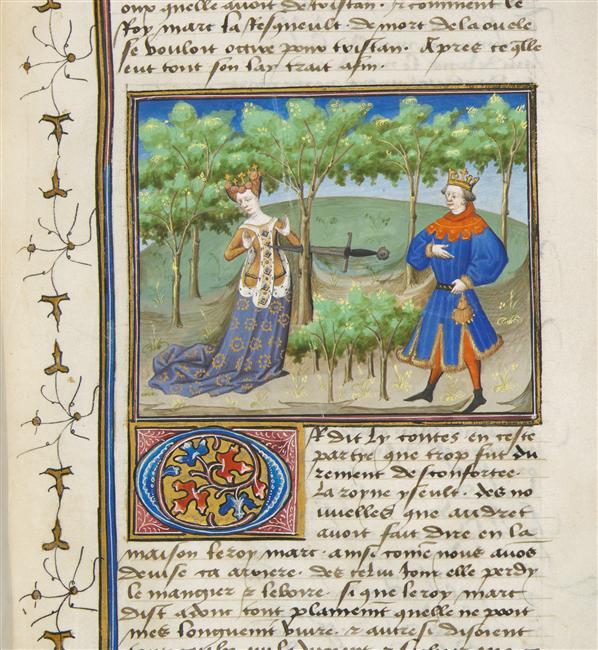 oux quelle auoit de tristan. & comment le
Roy marc la resqueult. de mort de la ou ele
se vouloit occire pour tristan. Apres ce q̄lle
eut tout son lay trait afin.
Or dit ly contes en ceste
partye que trop fut du
rement desconfortee
la royne yseult. des no
uuelles que audret
auoit fait dire en la
maison le roy marc. ainsi come nous auōs
deuise ca arriere. des celui Jour elle perdy
le mangier & leboire. si que le roy marc
dist adonc tout plainemt quelle ne pooit
mes longuemt viure. & autresi disoient